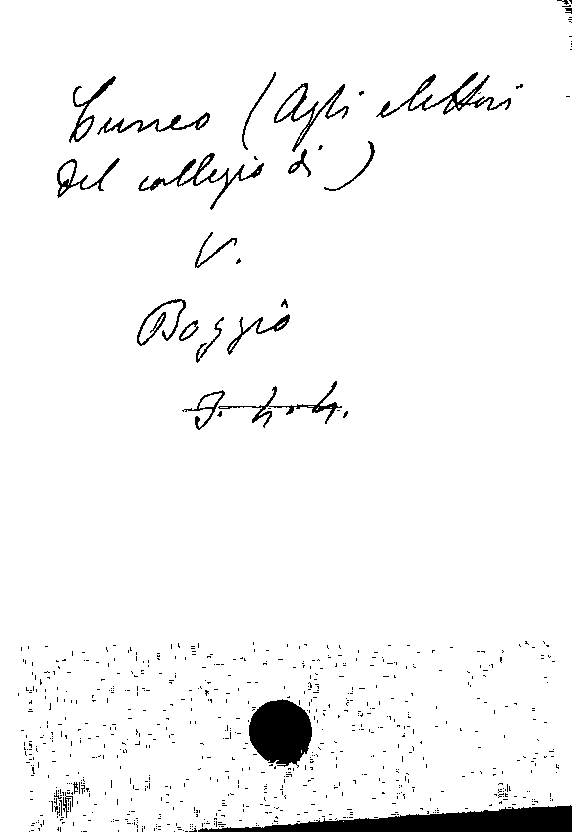 Cuneo (Agli elettori
del collegio di)
V.
Boggio